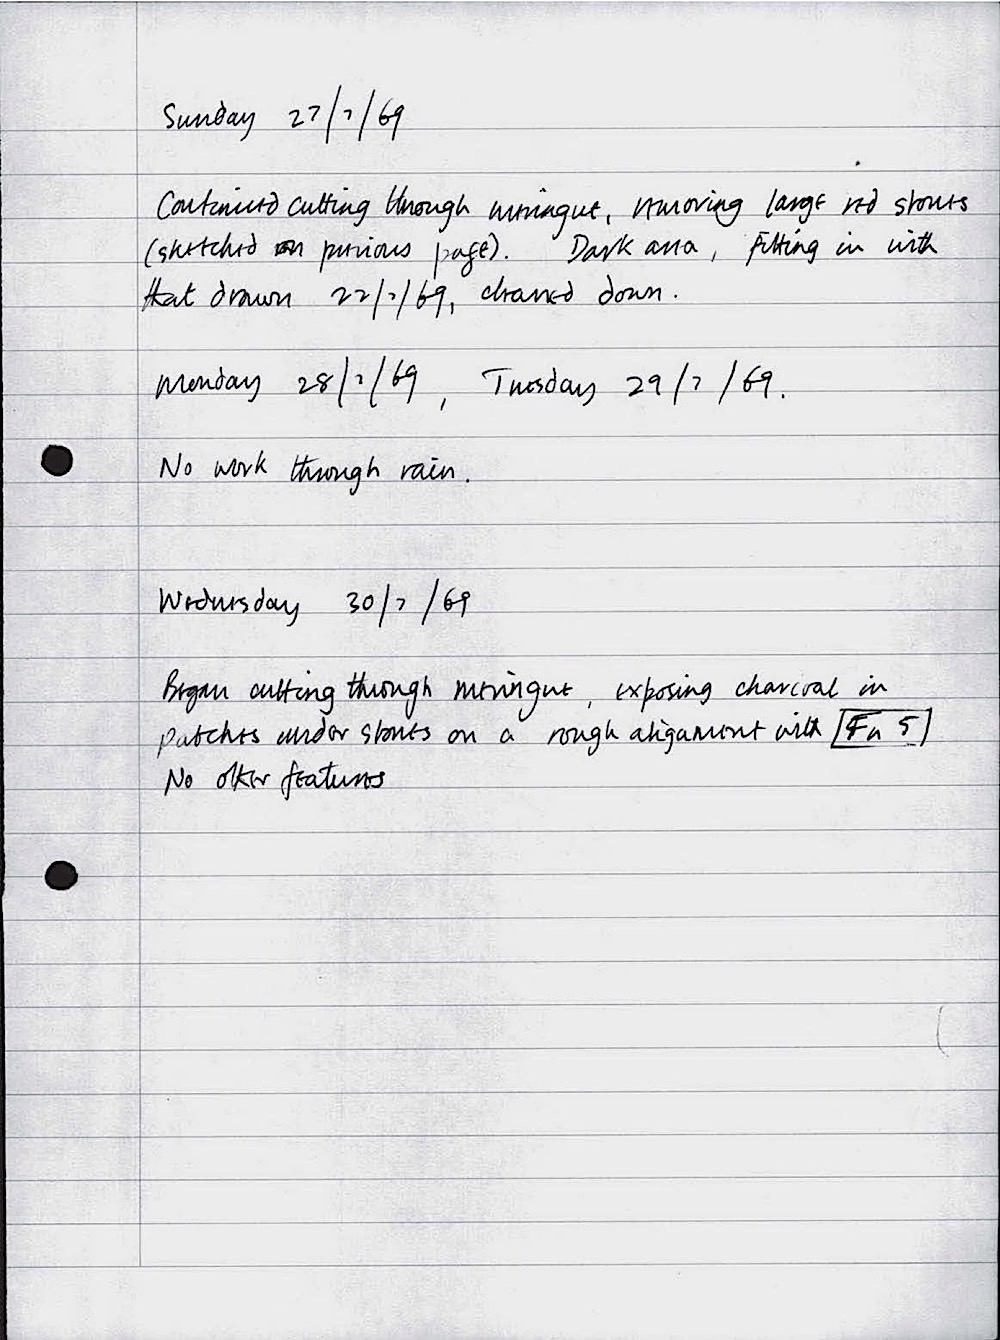 Sunday 27/7/69
Continued cutting through meringue, removing large red stones
(sketched on previous page). Dark area, fitting in with
that drawn 22/7/69, cleaned down.
Monday 28/7/69, Tuesday 29/7/69.
No work through rain.
Wednesday 30/7/69
Began cutting through meringue, exposing charcoal in
patches under stones on a rough aligament with Fn 5
No other features